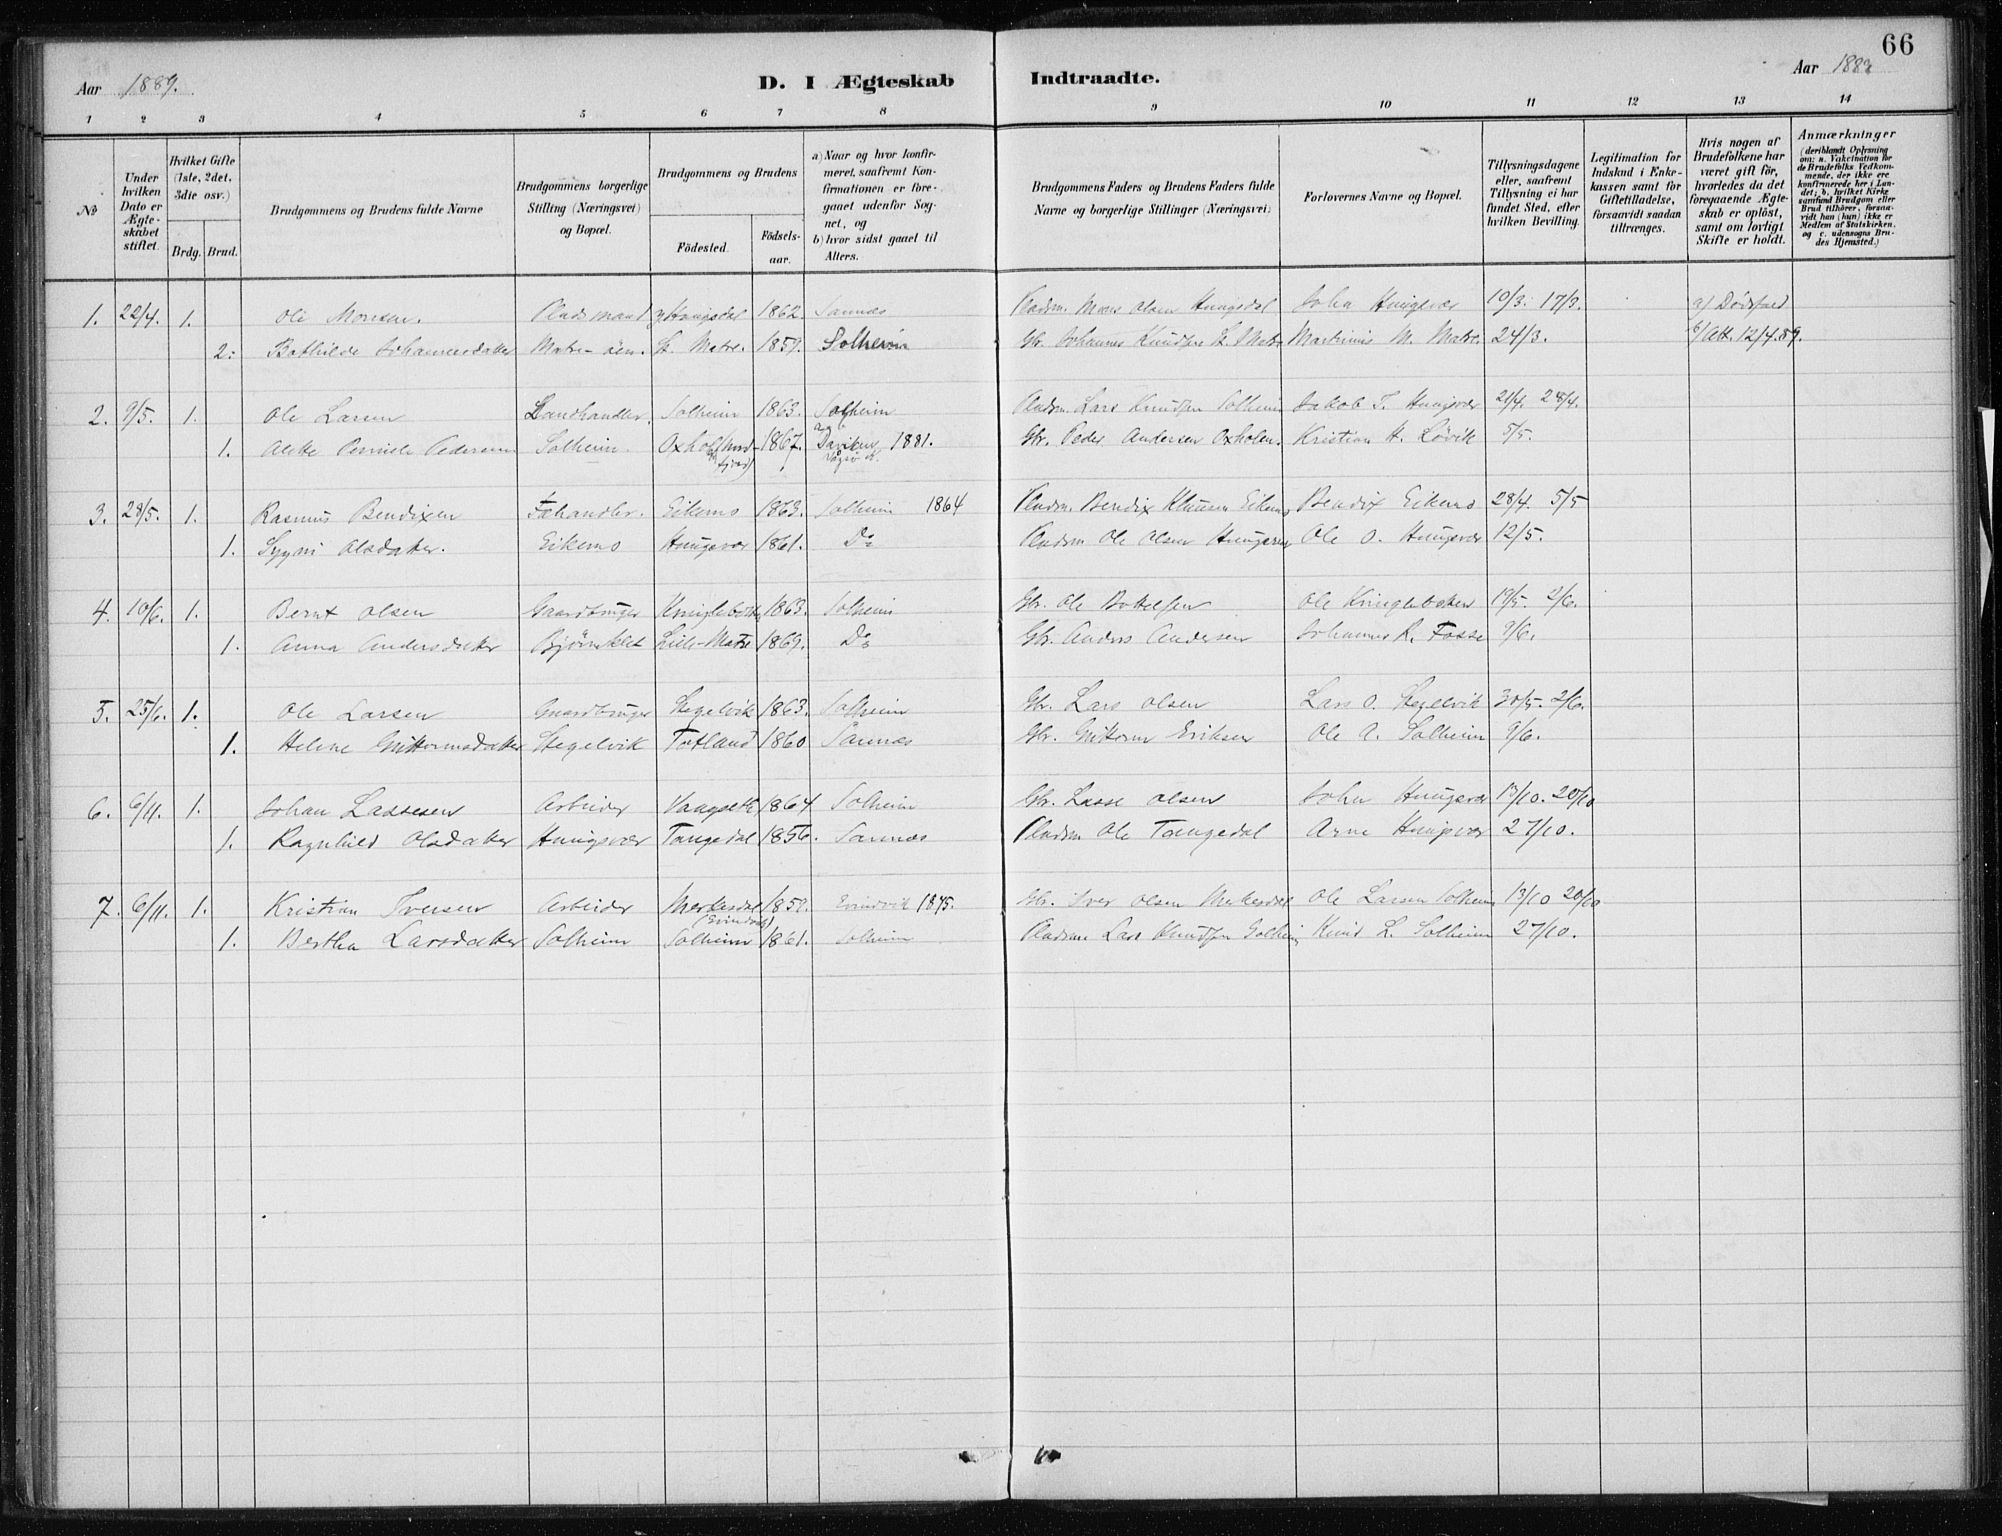 66
Aar 1889. D. I Ægteskab Indtraadte. Aar 188
1 2 3 4 5 6 7 8 9 10 11 12 13 14
№
Under hvilken Dato er Ægteskabet stiftet.
Hvilket Gifte (1ste, 2det, 3die osv.)
Brdg. Brud.
Brudgommens og Brudens fulde Navne
Brudgommens borgerlige Stilling (Næringsvei) og Bopæl.
Brudgommens og Brudens
Födested. Födselsaar.
a) Naar og hvor konfirmeret, saafremt Konfirmationen er foregaaet udenfor Sognet, og
b) hvor sidst gaaet til Alters.
Brudgommens Faders og Brudens Faders fulde Navne og borgerlige Stillinger (Næringsvei)
Forlovernes Navne og Bopæl.
Tillysningsdagene eller, saafremt Tillysning ei har fundet Sted, efter hvilken Bevilling.
Legitimation for Indskud i Enkekassen samt for Giftetilladelse, forsaavidt saadan tiltrænges.
Hvis nogen af Brudefolkene har været gift før, hvorledes da det foregaaende Ægteskab er opløst, samt om lovligt Skifte er holdt.
Anmærkninger (deriblandt Oplysning om: a. Vakcination for de Brudefolks Vedkommende, der ikke ere konfirmerede her i Landet; b. hvilket Kirkesamfund Brudgom eller Brud tilhører, forsaavidt han (hun) ikke er Medlem af Statskirken, og c. udensogns Brudes Hjemsted.)
1. 22/4. 1. Ole Monsen. Pladsmand 1862. Sannæs Pladsm. Mons Olsen John 10/3. 17/3. a/ Dødsfald
2. Bathilde Johannesdatter Matre- St. Matre. 1859. Solheim Gbr. Johannes Knudsen St. Matre Martinus M. Matre. 24/3. b/ Att. 12/4.89.
2. 9/5. 1. Ole Larsen Landhandler. Solheim 1863. Solheim Pladsm. Lars Knudsen Solheim Jakob T. 21/4. 28/4.
1. Pernille Pedersen Solheim. Oxholm 1867. Daviken 1881. Gbr. Peder Andersen Oxholm. Kristian H. Løvik 5/5.
3. 28/5. 1. Rasmus Bendixen Fæhandler. Eikemo 1863. Solheim 1864 Pladsm. Bendix Eikemo Bendix Eikemo 28/4. 5/5
1. Olsdatter. Eikemo 1861. Do Pladsm. Ole Olsen Ole O. 12/5.
4. 10/6. 1. Bernt Olsen Gaardbruger 1863. Solheim Gbr. Ole Ole Kringlebotten 19/5. 2/6.
1. Anna Andersdatter Lille-Matre 1869. Do Gbr. Anders Andersen Johannes R. Fosse 9/6.
5. 25/6. 1. Ole Larsen Gaardbruger Stegelvik 1863. Solheim Gbr. Lars Olsen Lars O. Stegelvik 30/5. 2/6.
1. Helene Guttormsdatter Stegelvik Totland 1860 Sannæs Gbr. Guttorm Eriksen Ole A. Solheim 9/6.
6. 6/11. 1. Johan Lassesen Arbeider 1864 Solheim Gbr. Lasse Olsen John 13/10. 20/10
1. Ragnhild Olsdatter Tangedal 1856. Sannæs Pladsm. Ole Tangedal Arne 27/10.
7. 6/11. 1. Kristian Iversen Arbeider 1859. Evindvik 1875. Gbr. Iver Olsen Ole Larsen Solheim 13/10 20/10
1. Bertha Larsdatter Solheim Solheim 1861. Solheim Pladsm. Lars Knudsen Solheim Knud L. Solheim 27/10.